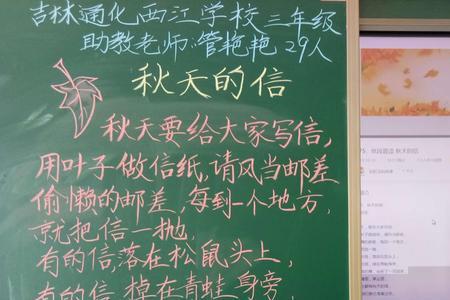 吉林通化西江学校三年级
助教老师:管艳艳 29人
秋天的信
秋天要给大家写信,
用叶子做信纸,请风当邮差
偷懒的邮差,每到一个地方,
就把信一抛,
有的信落在松鼠头上,
有的信掉在青蛙身旁